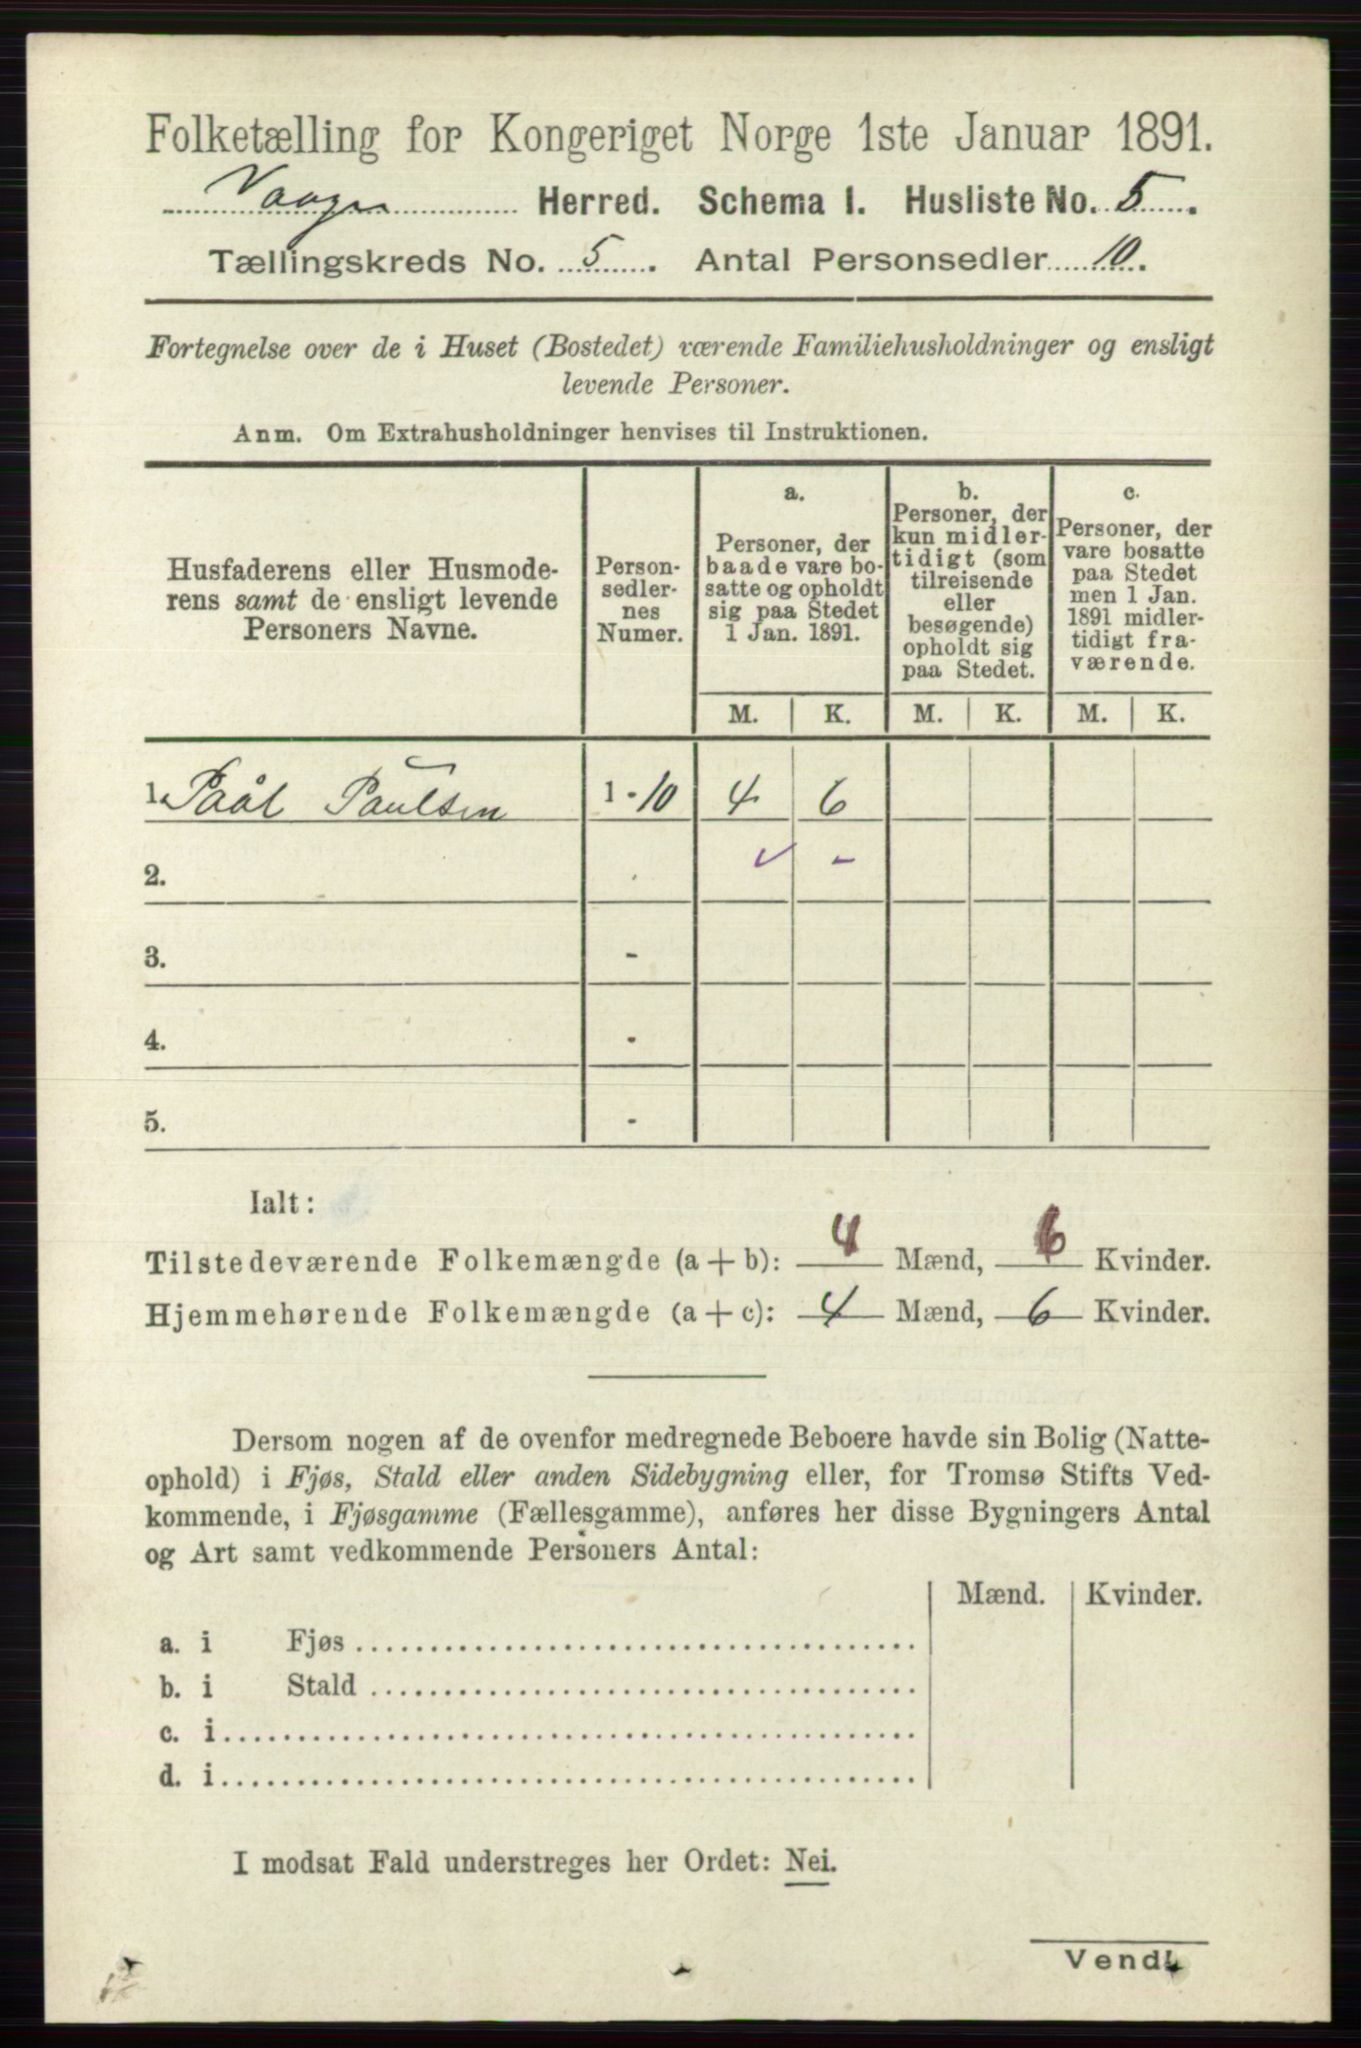 Folketælling for Kongeriget Norge 1ste Januar 1891.
Vaage Herred. Schema I. Husliste No. 5.
Tællingskreds No. 5. Antal Personsedler 10.
Fortegnelse over de i Huset (Bostedet) værende Familiehusholdninger og ensligt
levende Personer.
Anm. Om Extrahusholdninger henvises til Instruktionen.
Husfaderens eller Husmode-
rens samt de ensligt levende
Personers Navne.
Person-
sedler-
nes
Numer.
a.
Personer, der
baade vare bo-
satte og opholdt
sig paa Stedet
1 Jan. 1891.
b.
Personer, der
kun midler-
tidigt (som
tilreisende
eller
besøgende)
opholdt sig
paa Stedet.
c.
Personer, der
vare bosatte
paa Stedet
men 1 Jan.
1891 midler-
tidigt fra-
værende.
M. K. M. K. M. K.
1. Paål Paulsen 1-10 4 6
2. ✓ -
3. -
4. -
5. -
Ialt:
Tilstedeværende Folkemængde (a + b): 4 Mænd, 6 Kvinder.
Hjemmehørende Folkemængde (a + c): 4 Mænd, 6 Kvinder.
Dersom nogen af de ovenfor medregnede Beboere havde sin Bolig (Natte-
ophold) i Fjøs, Stald eller anden Sidebygning eller, for Tromsø Stifts Ved-
kommende, i Fjøsgamme (Fællesgamme), anføres her disse Bygningers Antal
og Art samt vedkommende Personers Antal:
Mænd. Kvinder.
a. i Fjøs
b. i Stald
c. i
d. i
I modsat Fald understreges her Ordet: Nei.
Vend!